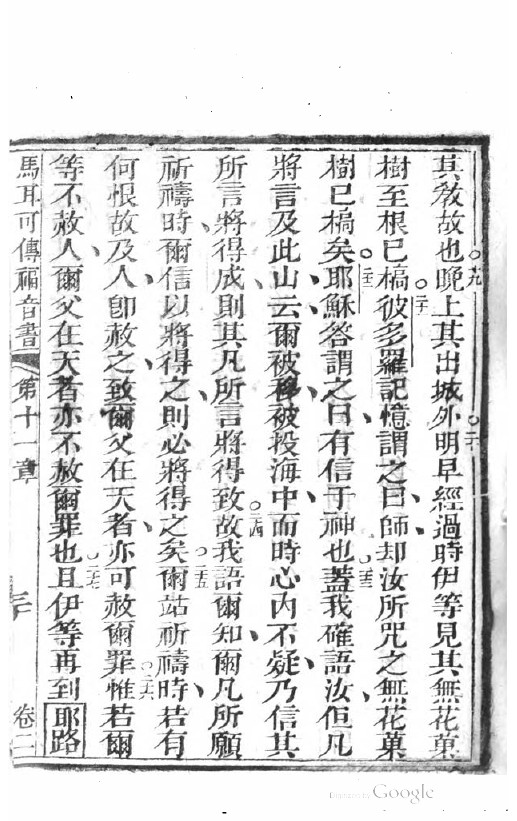 其教故也○十九晚上其出城外○二十明早經過時伊等見其無花菓
樹至根已槁○二一彼多羅記憶謂之曰師却汝所咒之無花菓
樹已槁矣○二二耶穌答謂之曰有信于神也○二三蓋我確語汝佢凡
將言及此山云爾被移被投海中而時心內不疑乃信其
所言將得成則其凡所言將得致○二四故我語爾知爾凡所願
祈禱時爾信以將得之則必將得之矣○二五爾站祈禱時若有
何恨故及人卽赦之致爾父在天者亦可赦爾罪○二六惟若爾
等不赦人爾父在天者亦不赦爾罪也○二七且伊等再到耶路
馬耳可傳福音書 第十一章 三十 卷二
Digitized by Google